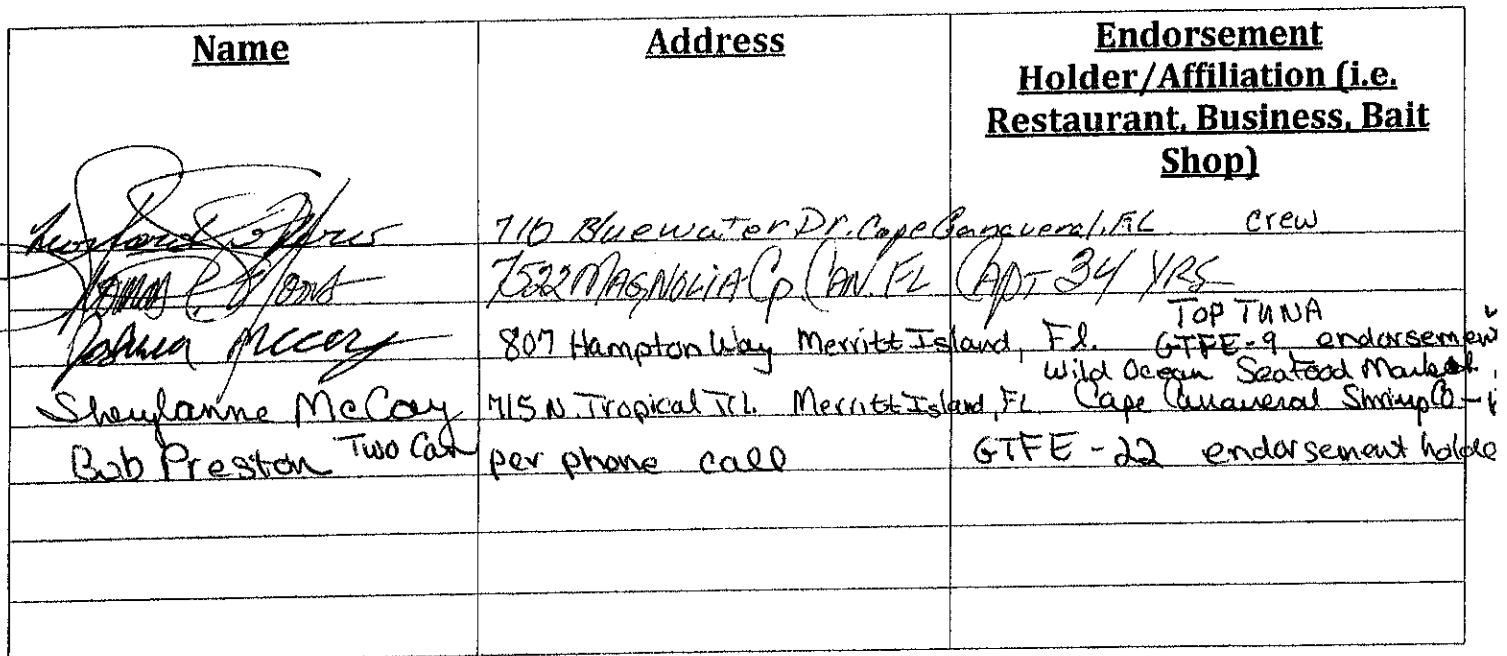 Name Address Endorsement
Holder/Affiliation (i.e.
Restaurant, Business, Bait
Shop)
710 Bluewater Dr. Cape Canaveral, FL crew
7522 MAGNOLIA Cp CAN. FL CAPT 34 YRS
TOP TUNA
Joshua McCoy 807 Hampton Way Merritt Island, Fl. GTFE-9 endorsemen
Wild Ocean Seafood Market,
Sherylanne McCoy 715 N. Tropical Trl. Merritt Island, FL Cape Canaveral Shrimp Co -
Bob Preston Two Can per phone call GTFE-22 endorsement holde